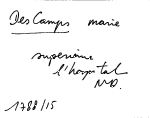 Des Camps marie
superieure
l'hospital
N.D.
1788/15